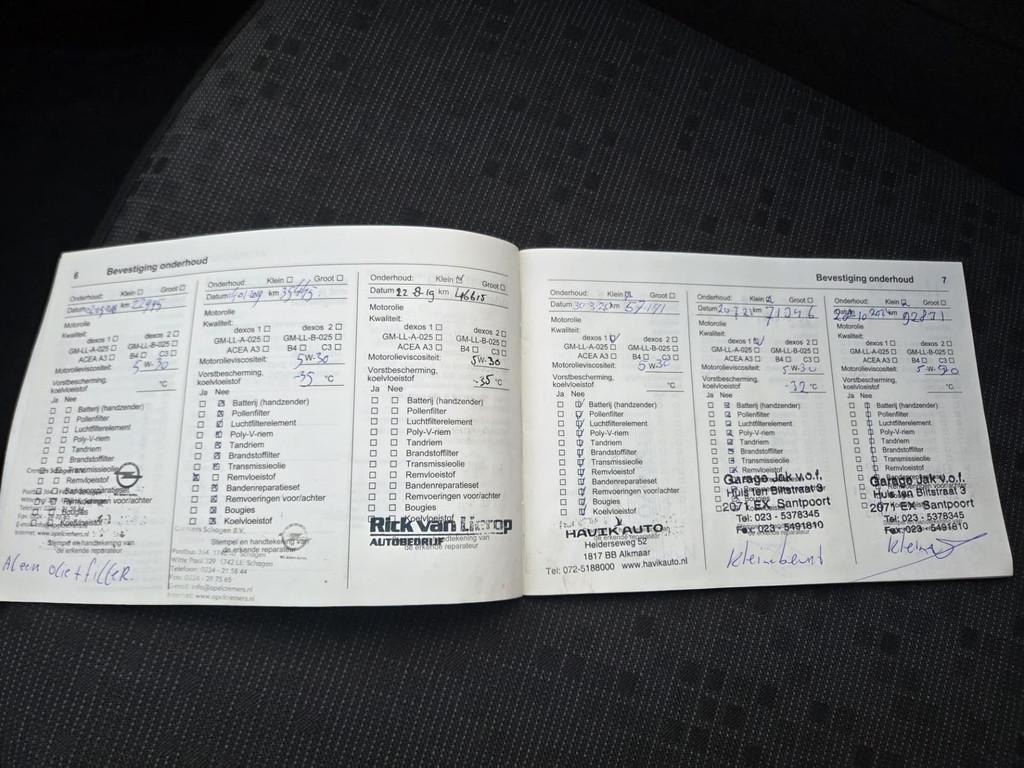 6 Bevestiging onderhoud
Onderhoud: Klein Groot
Datum km 22975
Motorolie
Kwaliteit:
dexos 1 dexos 2
GM-LL-A-025 GM-LL-B-025
ACEA A3 B4 C3
Motorolieviscositeit:
5W-30
Vorstbescherming,
koelvloeistof °C
Ja Nee
Batterij (handzender)
Pollenfilter
Luchtfilterelement
Poly-V-riem
Tandriem
Brandstoffilter
Transmissieolie
Remvloeistof
Bandenreparatieset
Remvoeringen voor/achter
Bougies
Koelvloeistof
Stempel en handtekening van
de erkende reparateur
Aleen olie+filter.
Onderhoud: Klein Groot
Datum km 35445
Motorolie
Kwaliteit:
dexos 1 dexos 2
GM-LL-A-025 GM-LL-B-025
ACEA A3 B4 C3
Motorolieviscositeit:
5W-30
Vorstbescherming,
koelvloeistof -35 °C
Ja Nee
Batterij (handzender)
Pollenfilter
Luchtfilterelement
Poly-V-riem
Tandriem
Brandstoffilter
Transmissieolie
Remvloeistof
Bandenreparatieset
Remvoeringen voor/achter
Bougies
Koelvloeistof
Stempel en handtekening van
de erkende reparateur
Witte Paal 329 1742 LE Schagen
Telefoon: 0224 - 21 58 44
Fax: 0224 - 29 75 65
E-mail: info@opelcremers.nl
Internet: www.opelcremers.nl
Onderhoud: Klein Groot
Datum 22 8-19 km 46615
Motorolie
Kwaliteit:
dexos 1 dexos 2
GM-LL-A-025 GM-LL-B-025
ACEA A3 B4 C3
Motorolieviscositeit: 5W-30
Vorstbescherming,
koelvloeistof -35 °C
Ja Nee
Batterij (handzender)
Pollenfilter
Luchtfilterelement
Poly-V-riem
Tandriem
Brandstoffilter
Transmissieolie
Remvloeistof
Bandenreparatieset
Remvoeringen voor/achter
Bougies
Koelvloeistof
Rick van Lierop
AUTOBEDRIJF
de erkende reparateur
Bevestiging onderhoud 7
Onderhoud: Klein Groot
Datum 30-3-20 km 57171
Motorolie
Kwaliteit:
dexos 1 dexos 2
GM-LL-A-025 GM-LL-B-025
ACEA A3 B4 C3
Motorolieviscositeit: 5W30
Vorstbescherming,
koelvloeistof °C
Ja Nee
Batterij (handzender)
Pollenfilter
Luchtfilterelement
Poly-V-riem
Tandriem
Brandstoffilter
Transmissieolie
Remvloeistof
Bandenreparatieset
Remvoeringen voor/achter
Bougies
Koelvloeistof
HAVIK AUTO
de erkende reparateur
Helderseweg 52
1817 BB Alkmaar
Tel: 072-5188000 www.havikauto.nl
Onderhoud: Klein Groot
Datum 20 7 21 km 71246
Motorolie
Kwaliteit:
dexos 1 dexos 2
GM-LL-A-025 GM-LL-B-025
ACEA A3 B4 C3
Motorolieviscositeit:
5W-30
Vorstbescherming,
koelvloeistof -32 °C
Ja Nee
Batterij (handzender)
Pollenfilter
Luchtfilterelement
Poly-V-riem
Tandriem
Brandstoffilter
Transmissieolie
Remvloeistof
Garage Jak v.o.f.
Huis ten Biltstraat 3
2071 EX Santpoort
Tel: 023 - 5378345
Fax: 023 - 5491810
Kleinebeurt
Onderhoud: Klein Groot
km 92871
Motorolie
Kwaliteit:
dexos 1 dexos 2
GM-LL-A-025 GM-LL-B-025
ACEA A3 B4 C3
Motorolieviscositeit:
Vorstbescherming,
koelvloeistof °C
Ja Nee
Batterij (handzender)
Pollenfilter
Luchtfilterelement
Poly-V-riem
Tandriem
Brandstoffilter
Transmissieolie
Remvloeistof
Garage Jak v.o.f.
Huis ten Biltstraat 3
2071 EX Santpoort
Tel: 023 - 5378345
Fax: 023 - 5491810